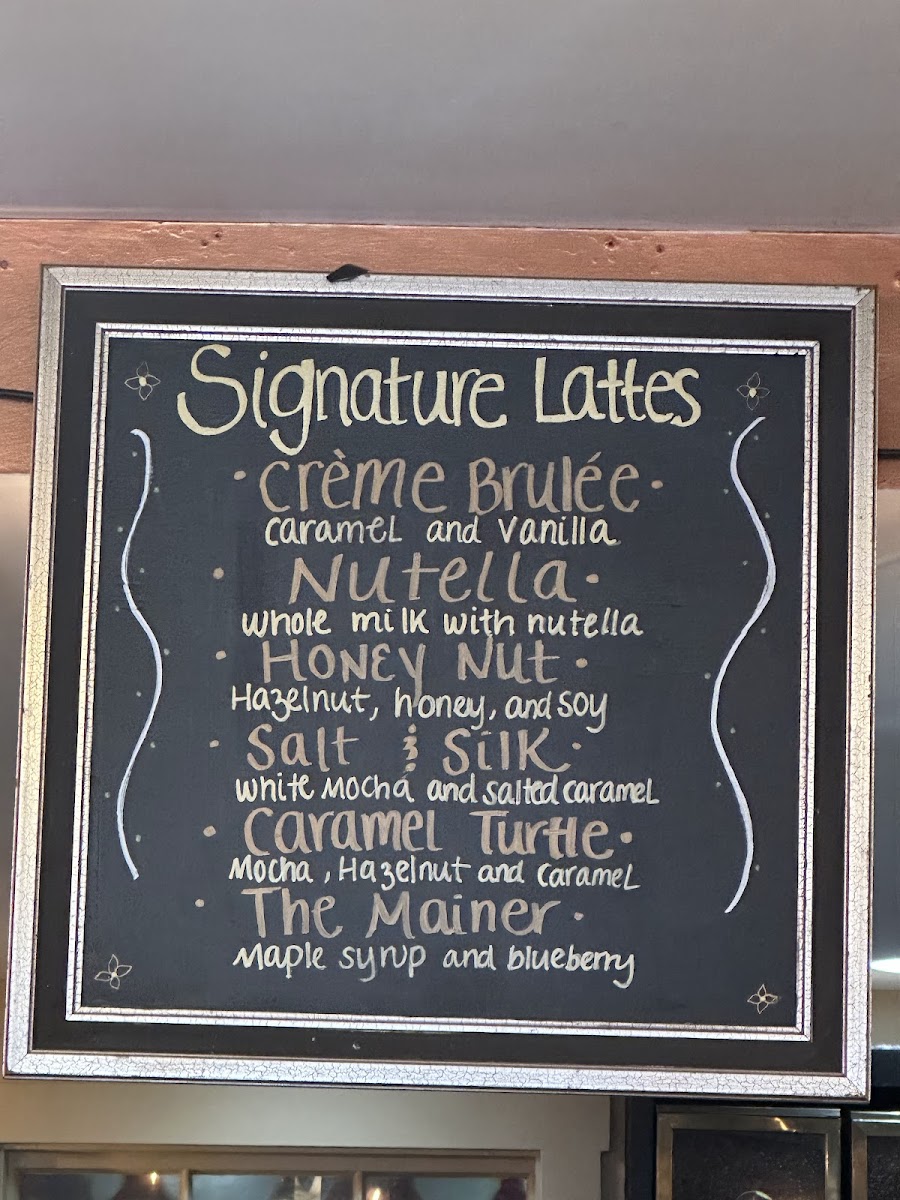 Signature Lattes
· Crème Brulée ·
caramel and vanilla
· Nutella ·
whole milk with nutella
· Honey Nut ·
Hazelnut, honey, and soy
· Salt & Silk ·
white Mocha and salted caramel
· Caramel Turtle ·
Mocha, Hazelnut and caramel
· The Mainer ·
Maple syrup and blueberry